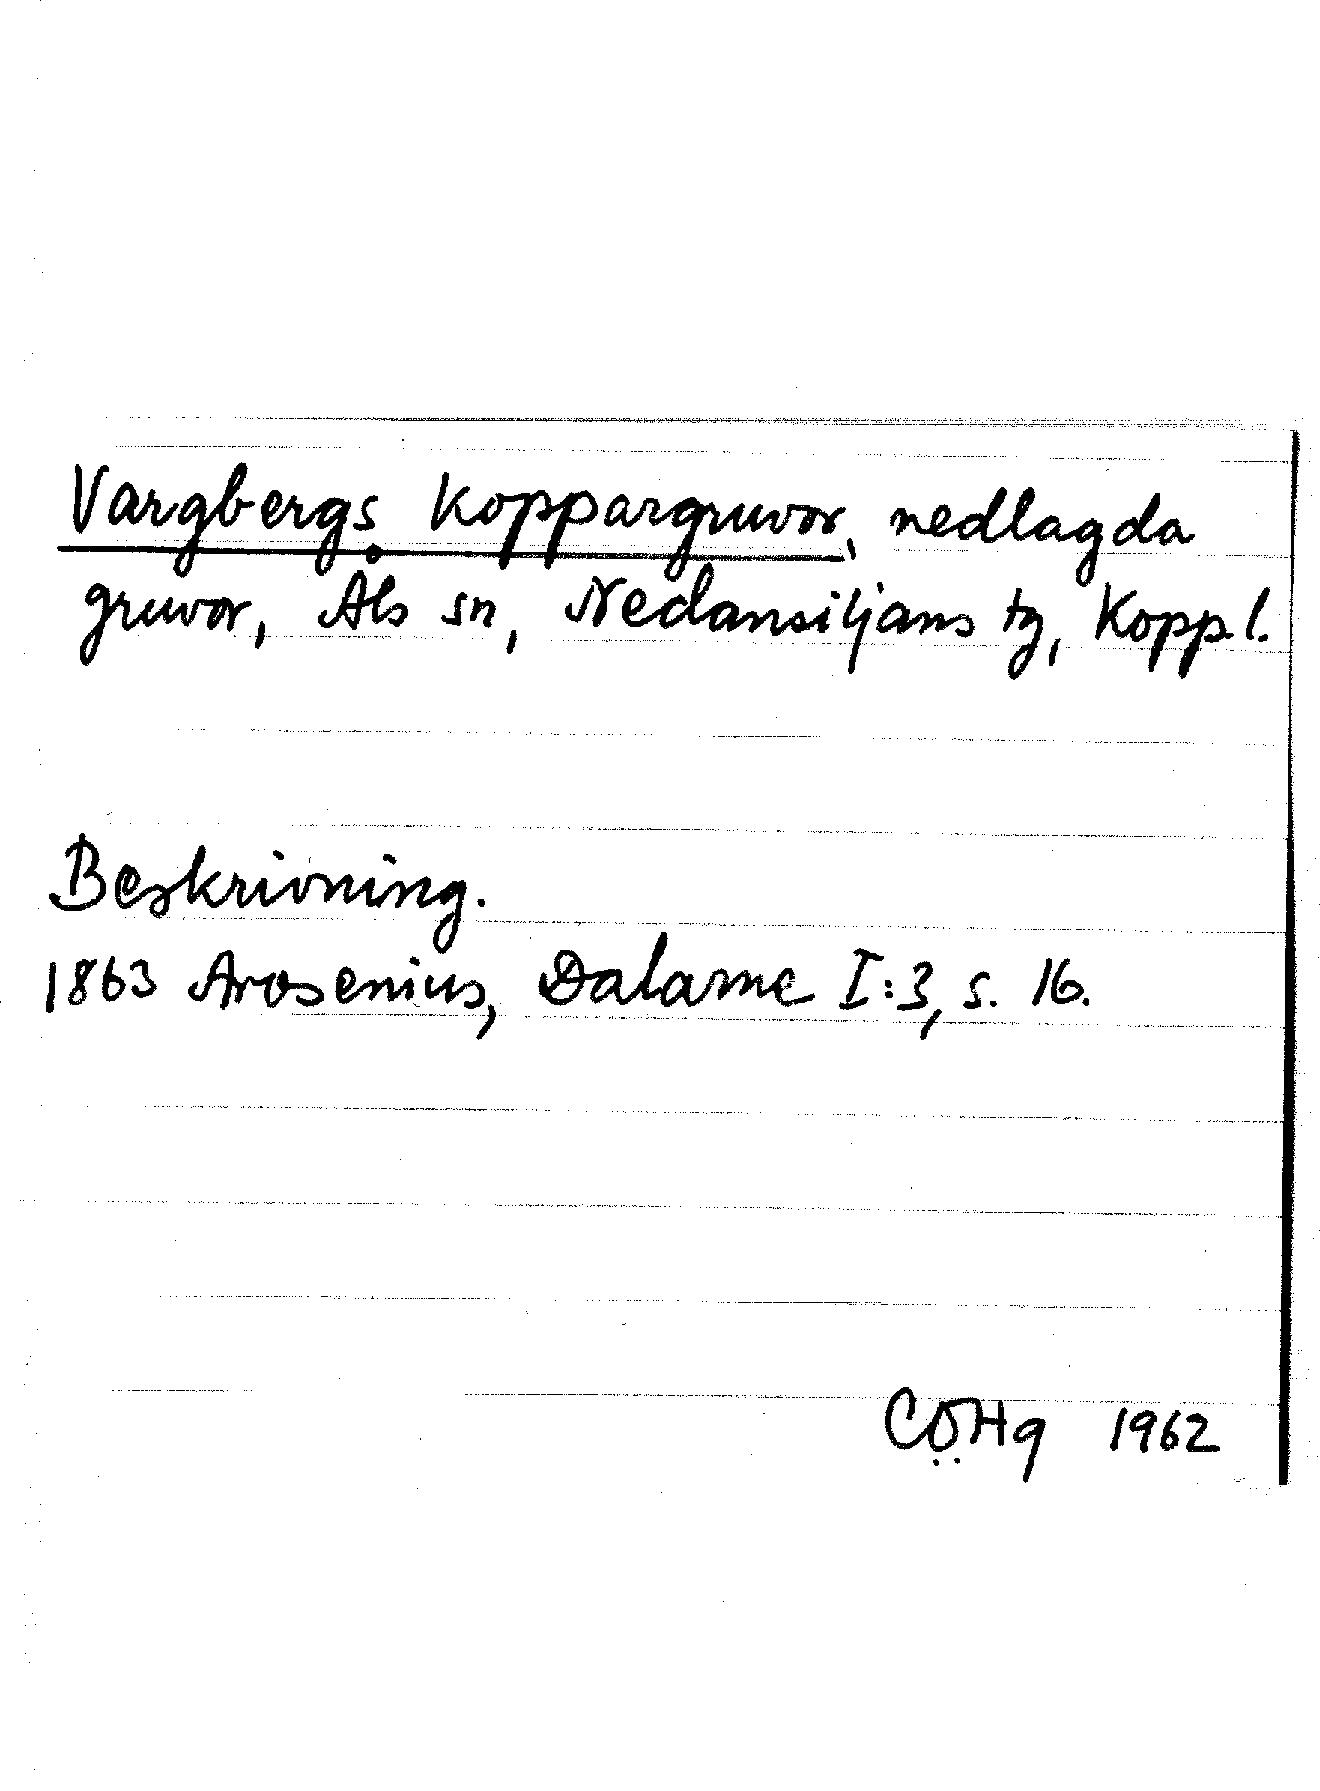 Vargbergs Koppargruvor, nedlagda
gruvor, Als sn, Nedansiljans tg, Kopp. l.
Beskrivning.
1863 Arosenius, Dalarne I:3, s. 16.
CÖHg 1962